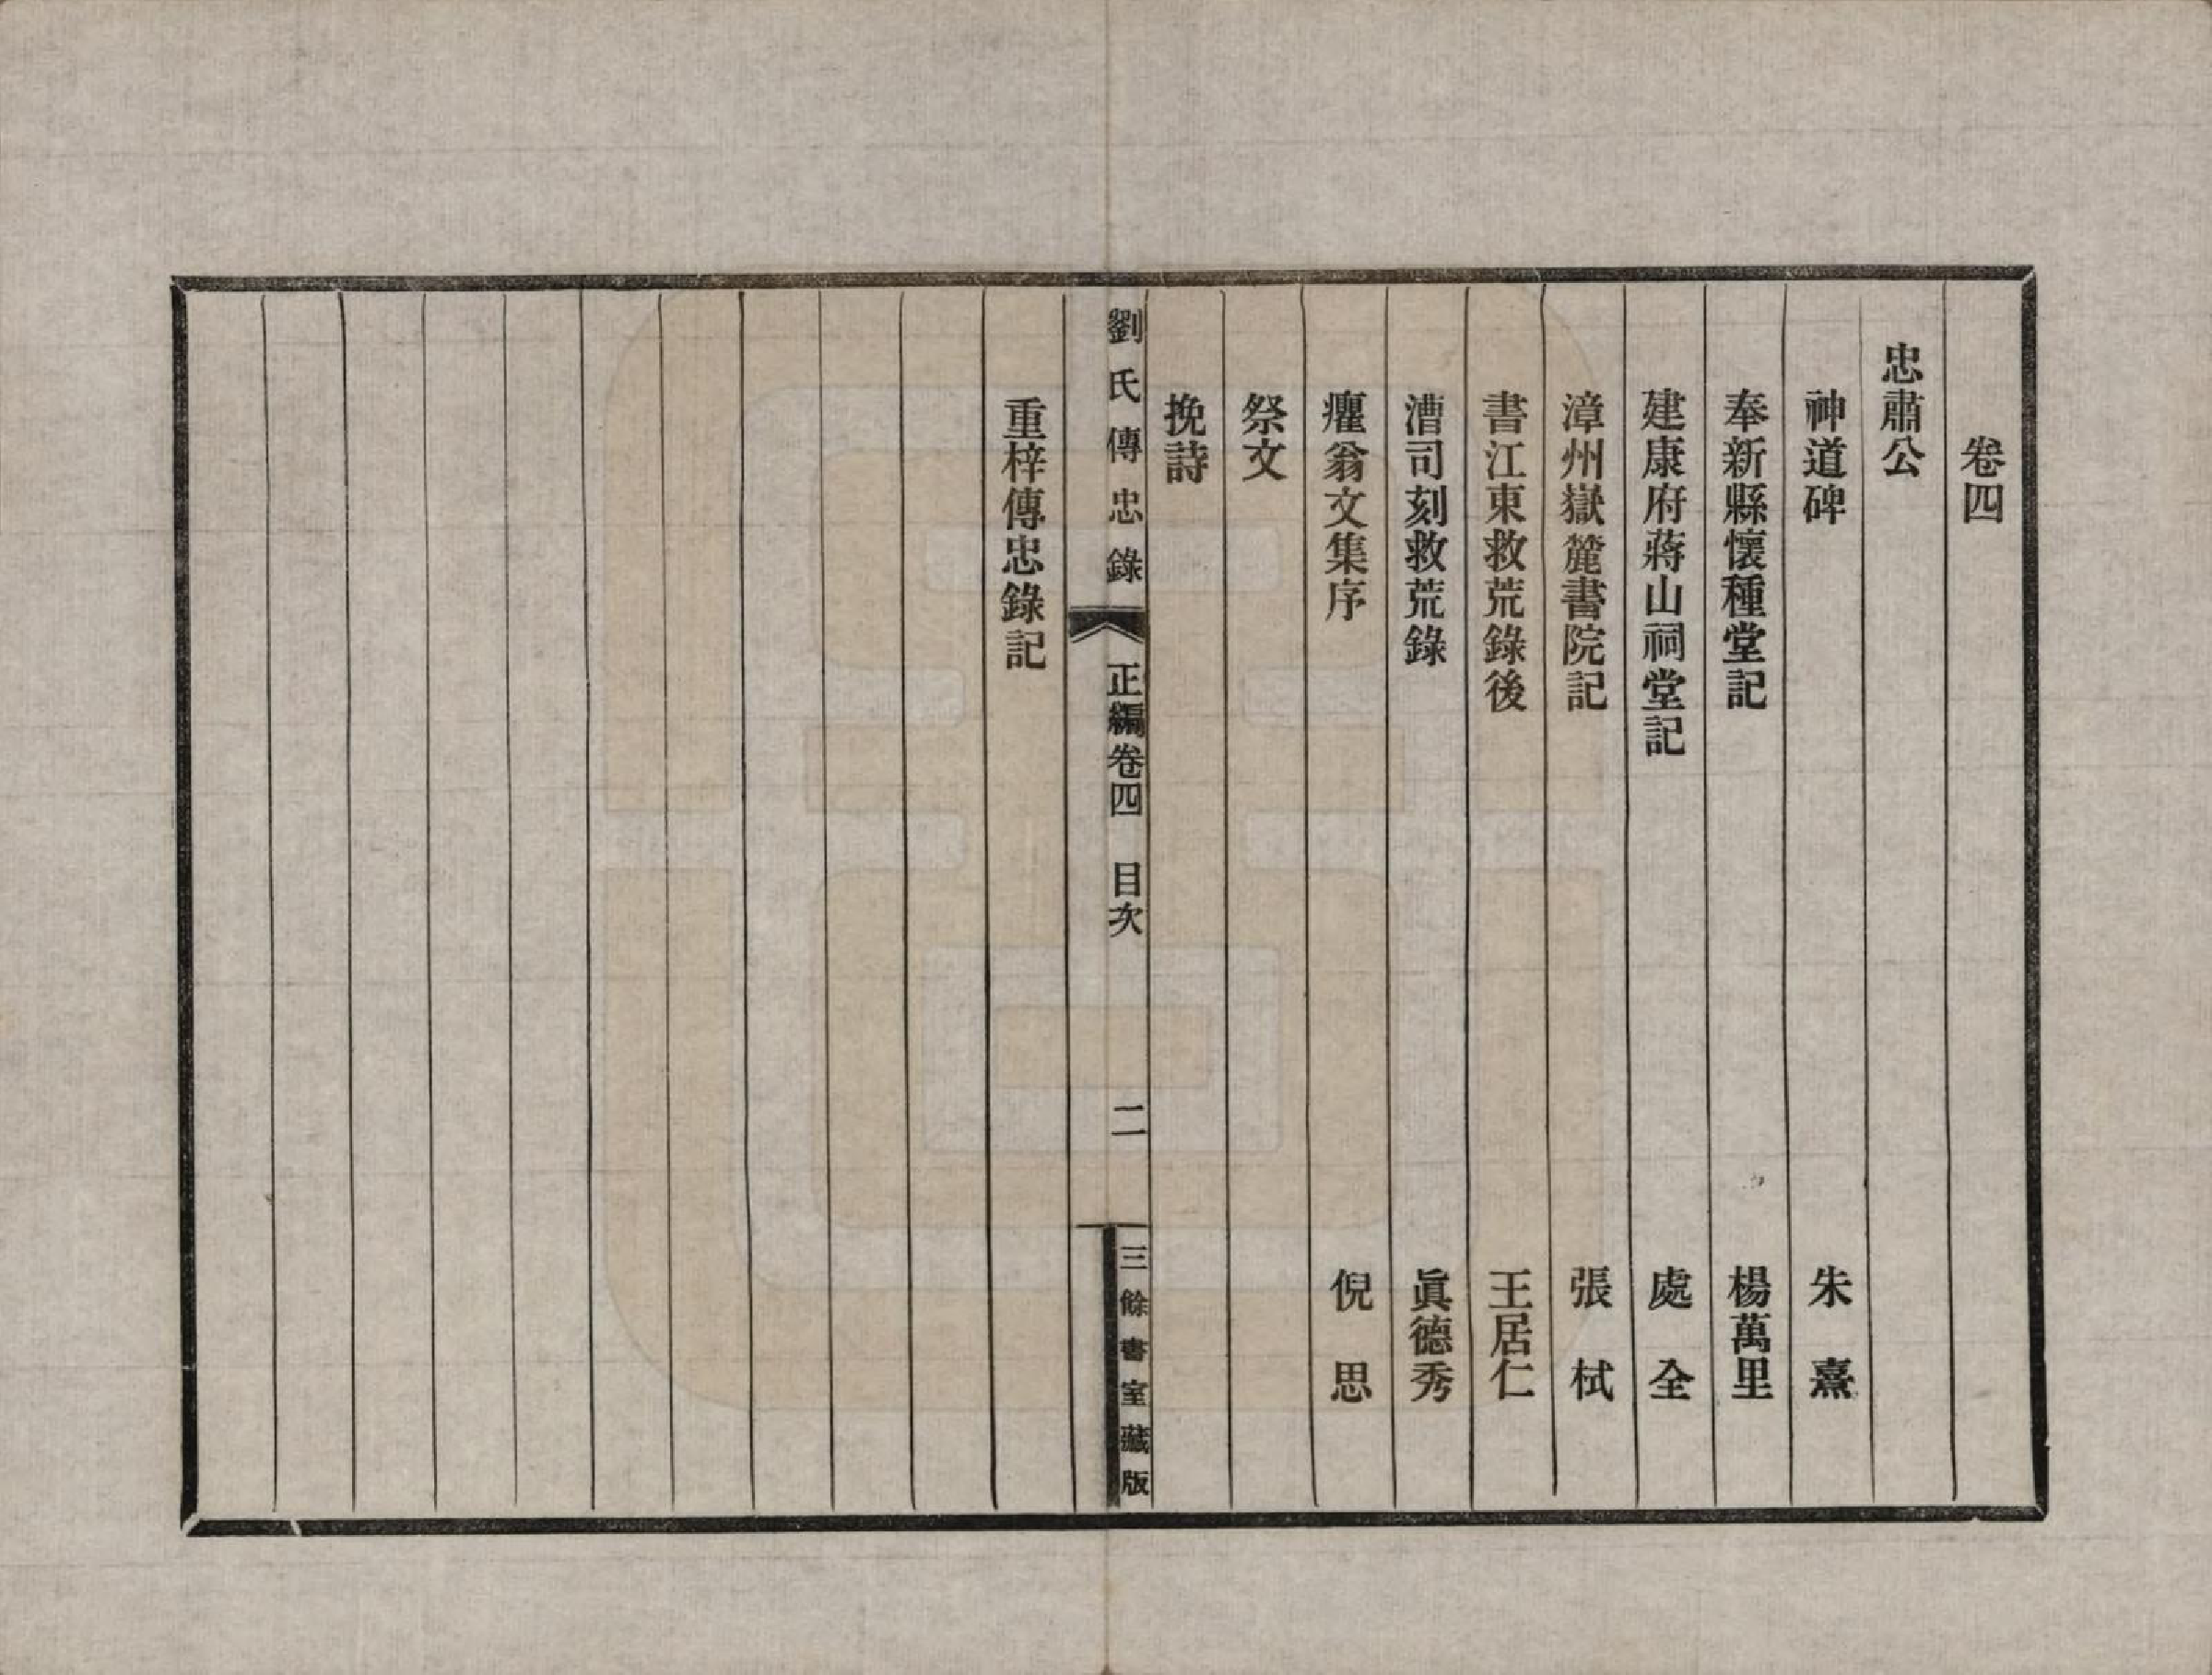 卷四
忠肅公
神道碑 朱熹
奉新縣懷種堂記 楊萬里
建康府蔣山祠堂記 處全
漳州嶽麓書院記 張栻
書江東救荒錄後 王居仁
漕司刻救荒錄 眞德秀
癯翁文集序 倪思
祭文
挽詩
劉氏傳忠錄 正編卷四 目次 二 三餘書室藏版
重梓傳忠錄記